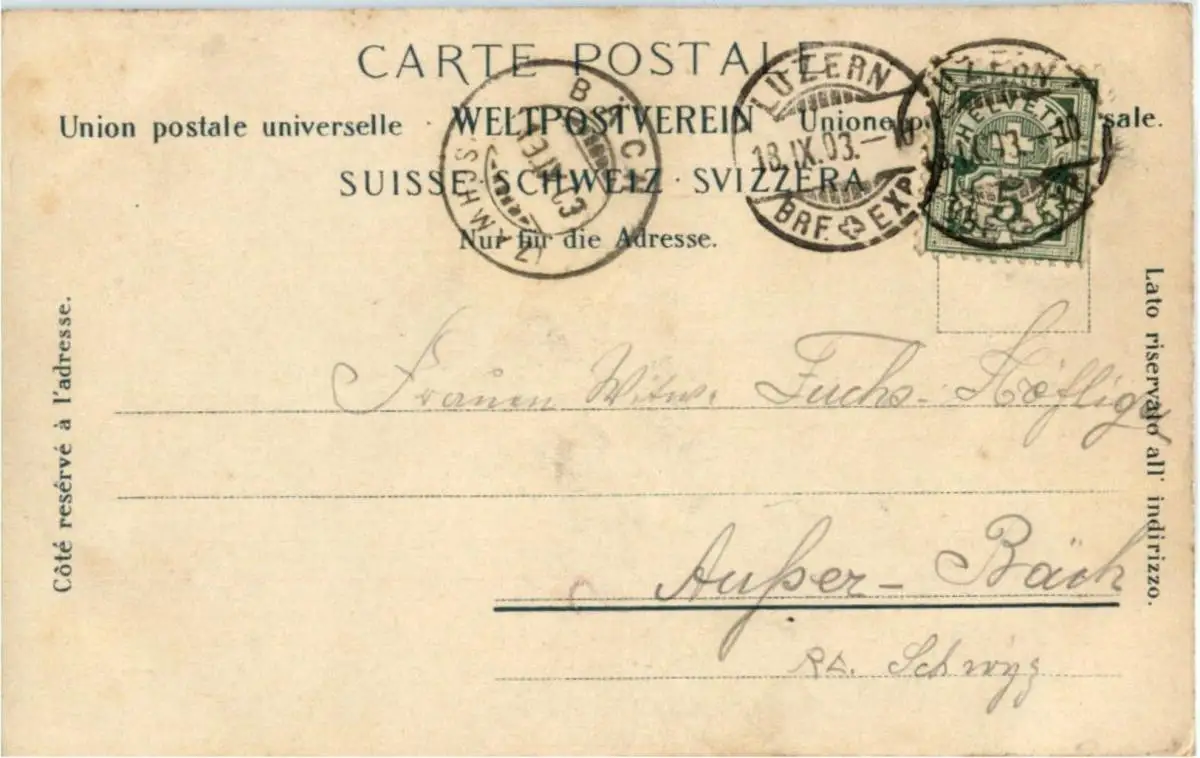 CARTE POSTALE
Union postale universelle · WELTPOSTVEREIN · Unione po sale.
SUISSE · SCHWEIZ · SVIZZERA
Nur für die Adresse.
BÄCH
(SCHWYZ)
LUZERN
18.IX.03.
BRF. EXP.
LUZERN
18.IX.03.
BRF. EXP.
HELVETIA
5
Côté resérvé à l'adresse.
Lato riservato all' indirizzo.
Frauen Witw. Fuchs-Höflige
Außer-Bäch
Kt. Schwyz